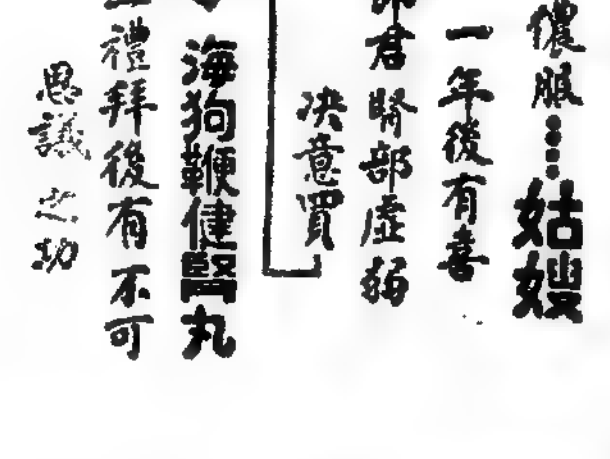 儂服⋮姑嫂
一年後有喜
君腎部虛弱
決意買
海狗鞭健腎丸
禮拜後有不可
思議之功